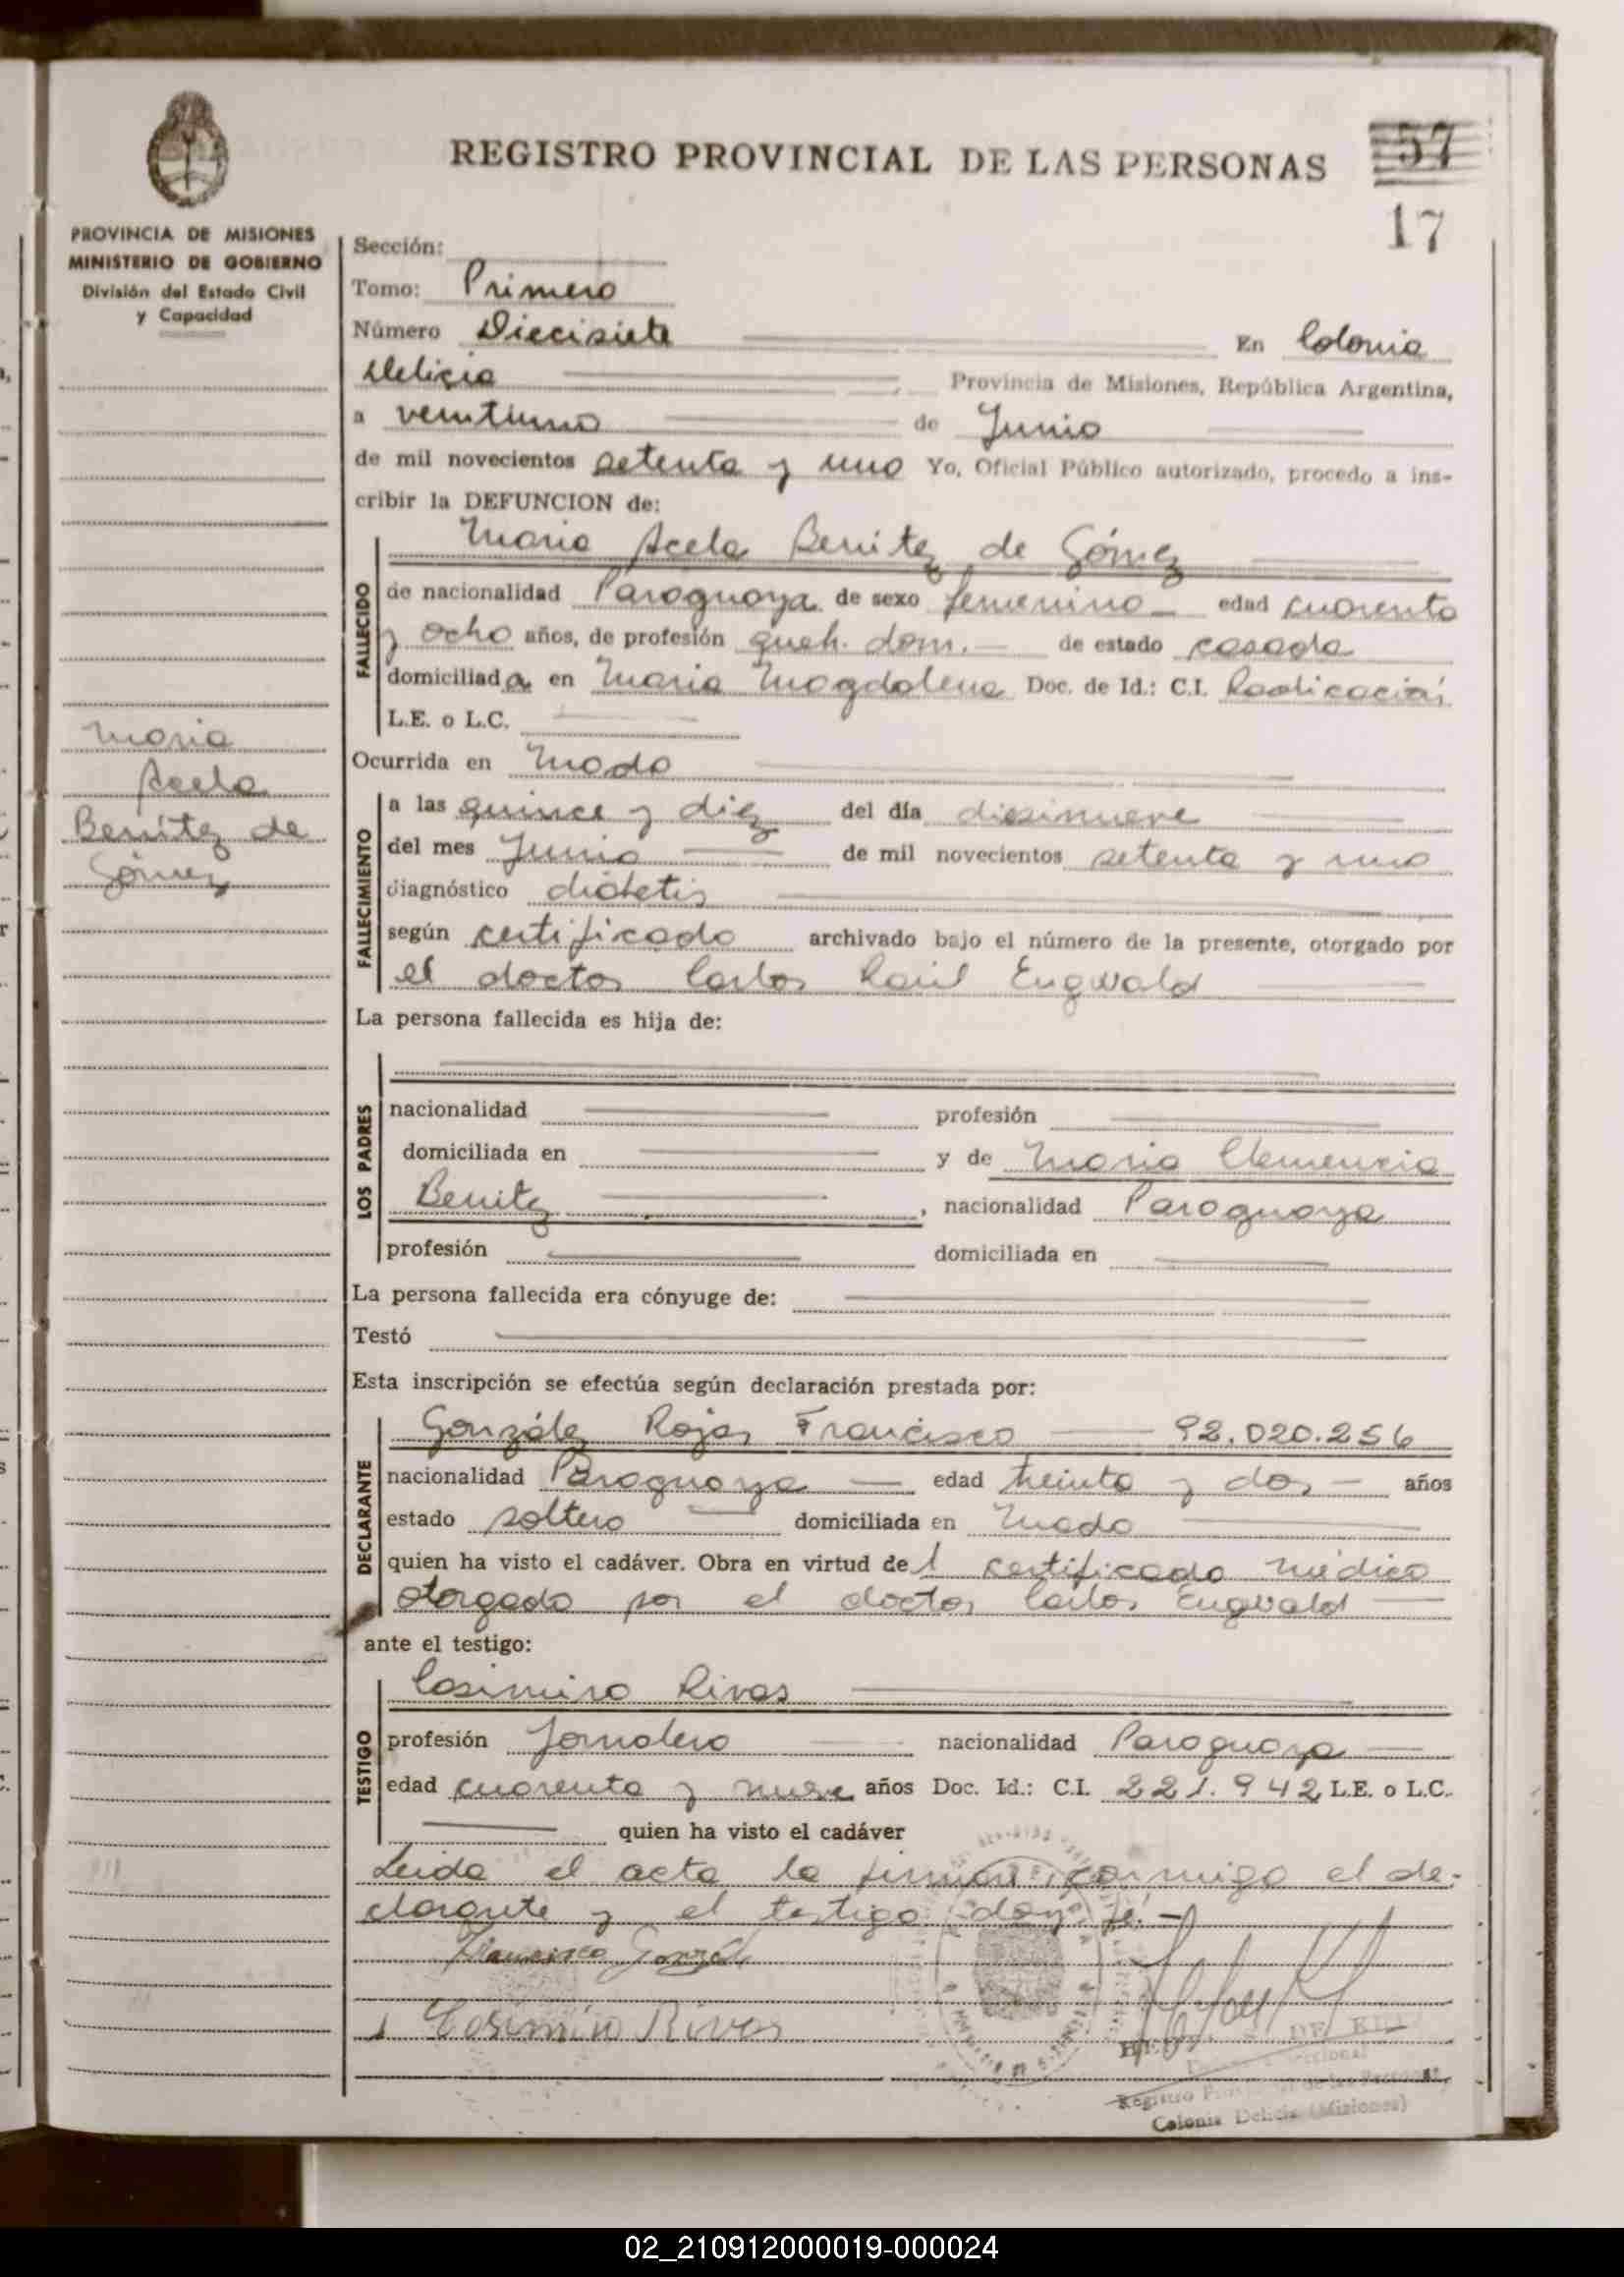 57
REGISTRO PROVINCIAL DE LAS PERSONAS
17
PROVINCIA DE MISIONES
MINISTERIO DE GOBIERNO
División del Estado Civil
y Capacidad
Maria
Acela
Benítez de
Gómez
Sección:
Tomo: Primero
Número Diecisiete En Colonia
Delicia Provincia de Misiones, República Argentina,
a veintiuno de Junio
de mil novecientos setenta y uno Yo, Oficial Público autorizado, procedo a ins-
cribir la DEFUNCION de:
Maria Acela Benitez de Gómez
FALLECIDO
de nacionalidad Paraguaya de sexo femenino edad cuarenta
y ocho años, de profesión queh. dom. de estado casada
domiciliada en Maria Magdalena Doc. de Id.: C.I. Radicación
L.E. o L.C.
Ocurrida en Mado
FALLECIMIENTO
a las quince y diez del día diecinueve
del mes Junio de mil novecientos setenta y uno
diagnóstico diabetis
según certificado archivado bajo el número de la presente, otorgado por
el doctor Carlos Raúl Engwald
La persona fallecida es hija de:
LOS PADRES
nacionalidad profesión
domiciliada en y de Maria Clemencia
Benitez , nacionalidad Paraguaya
profesión domiciliada en
La persona fallecida era cónyuge de:
Testó
Esta inscripción se efectúa según declaración prestada por:
González Rojas Francisco 92.020.256
DECLARANTE
nacionalidad Paraguaya edad treinta y dos años
estado soltero domiciliada en Mado
quien ha visto el cadáver. Obra en virtud del certificado médico
otorgado por el doctor Carlos Engwald
ante el testigo:
Casimiro Rivas
TESTIGO
profesión Jornalero nacionalidad Paraguaya
edad cuarenta y nueve años Doc. Id.: C.I. 221.942 L.E. o L.C.
quien ha visto el cadáver
Leida el acta la firman conmigo el de-
clarante y el testigo doy fé.-
Francisco González
Casimiro Rivas
DE
Registro de las Personas
Colonia Delicia (Misiones)
02_210912000019-000024